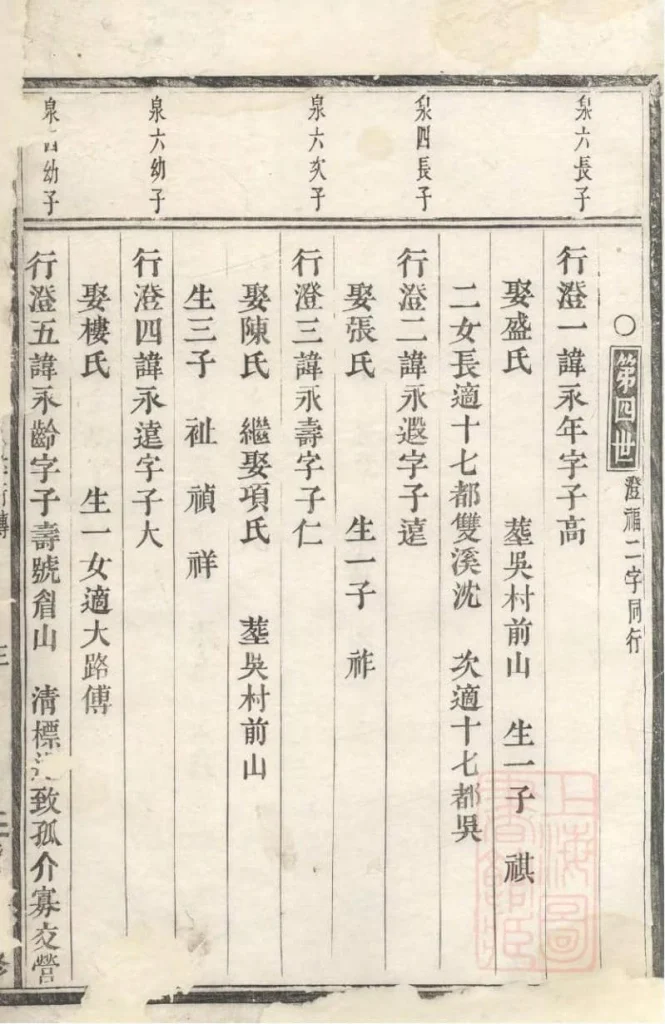 ○第四世 澄福二字同行
泉六長子
行澄一諱永年字子高
娶盛氏 塟吳村前山 生一子 祺
二女長適十七都雙溪沈 次適十七都吳
泉四長子
行澄二諱永遐字子遠
娶張氏 生一子 祚
泉六次子
行澄三諱永壽字子仁
娶陳氏 繼娶項氏 塟吳村前山
生三子 祉 禎 祥
泉六幼子
行澄四諱永遠字子大
娶樓氏 生一女適大路傅
泉四幼子
行澄五諱永齡字子壽號山 清標致孤介寡交營
上海圖